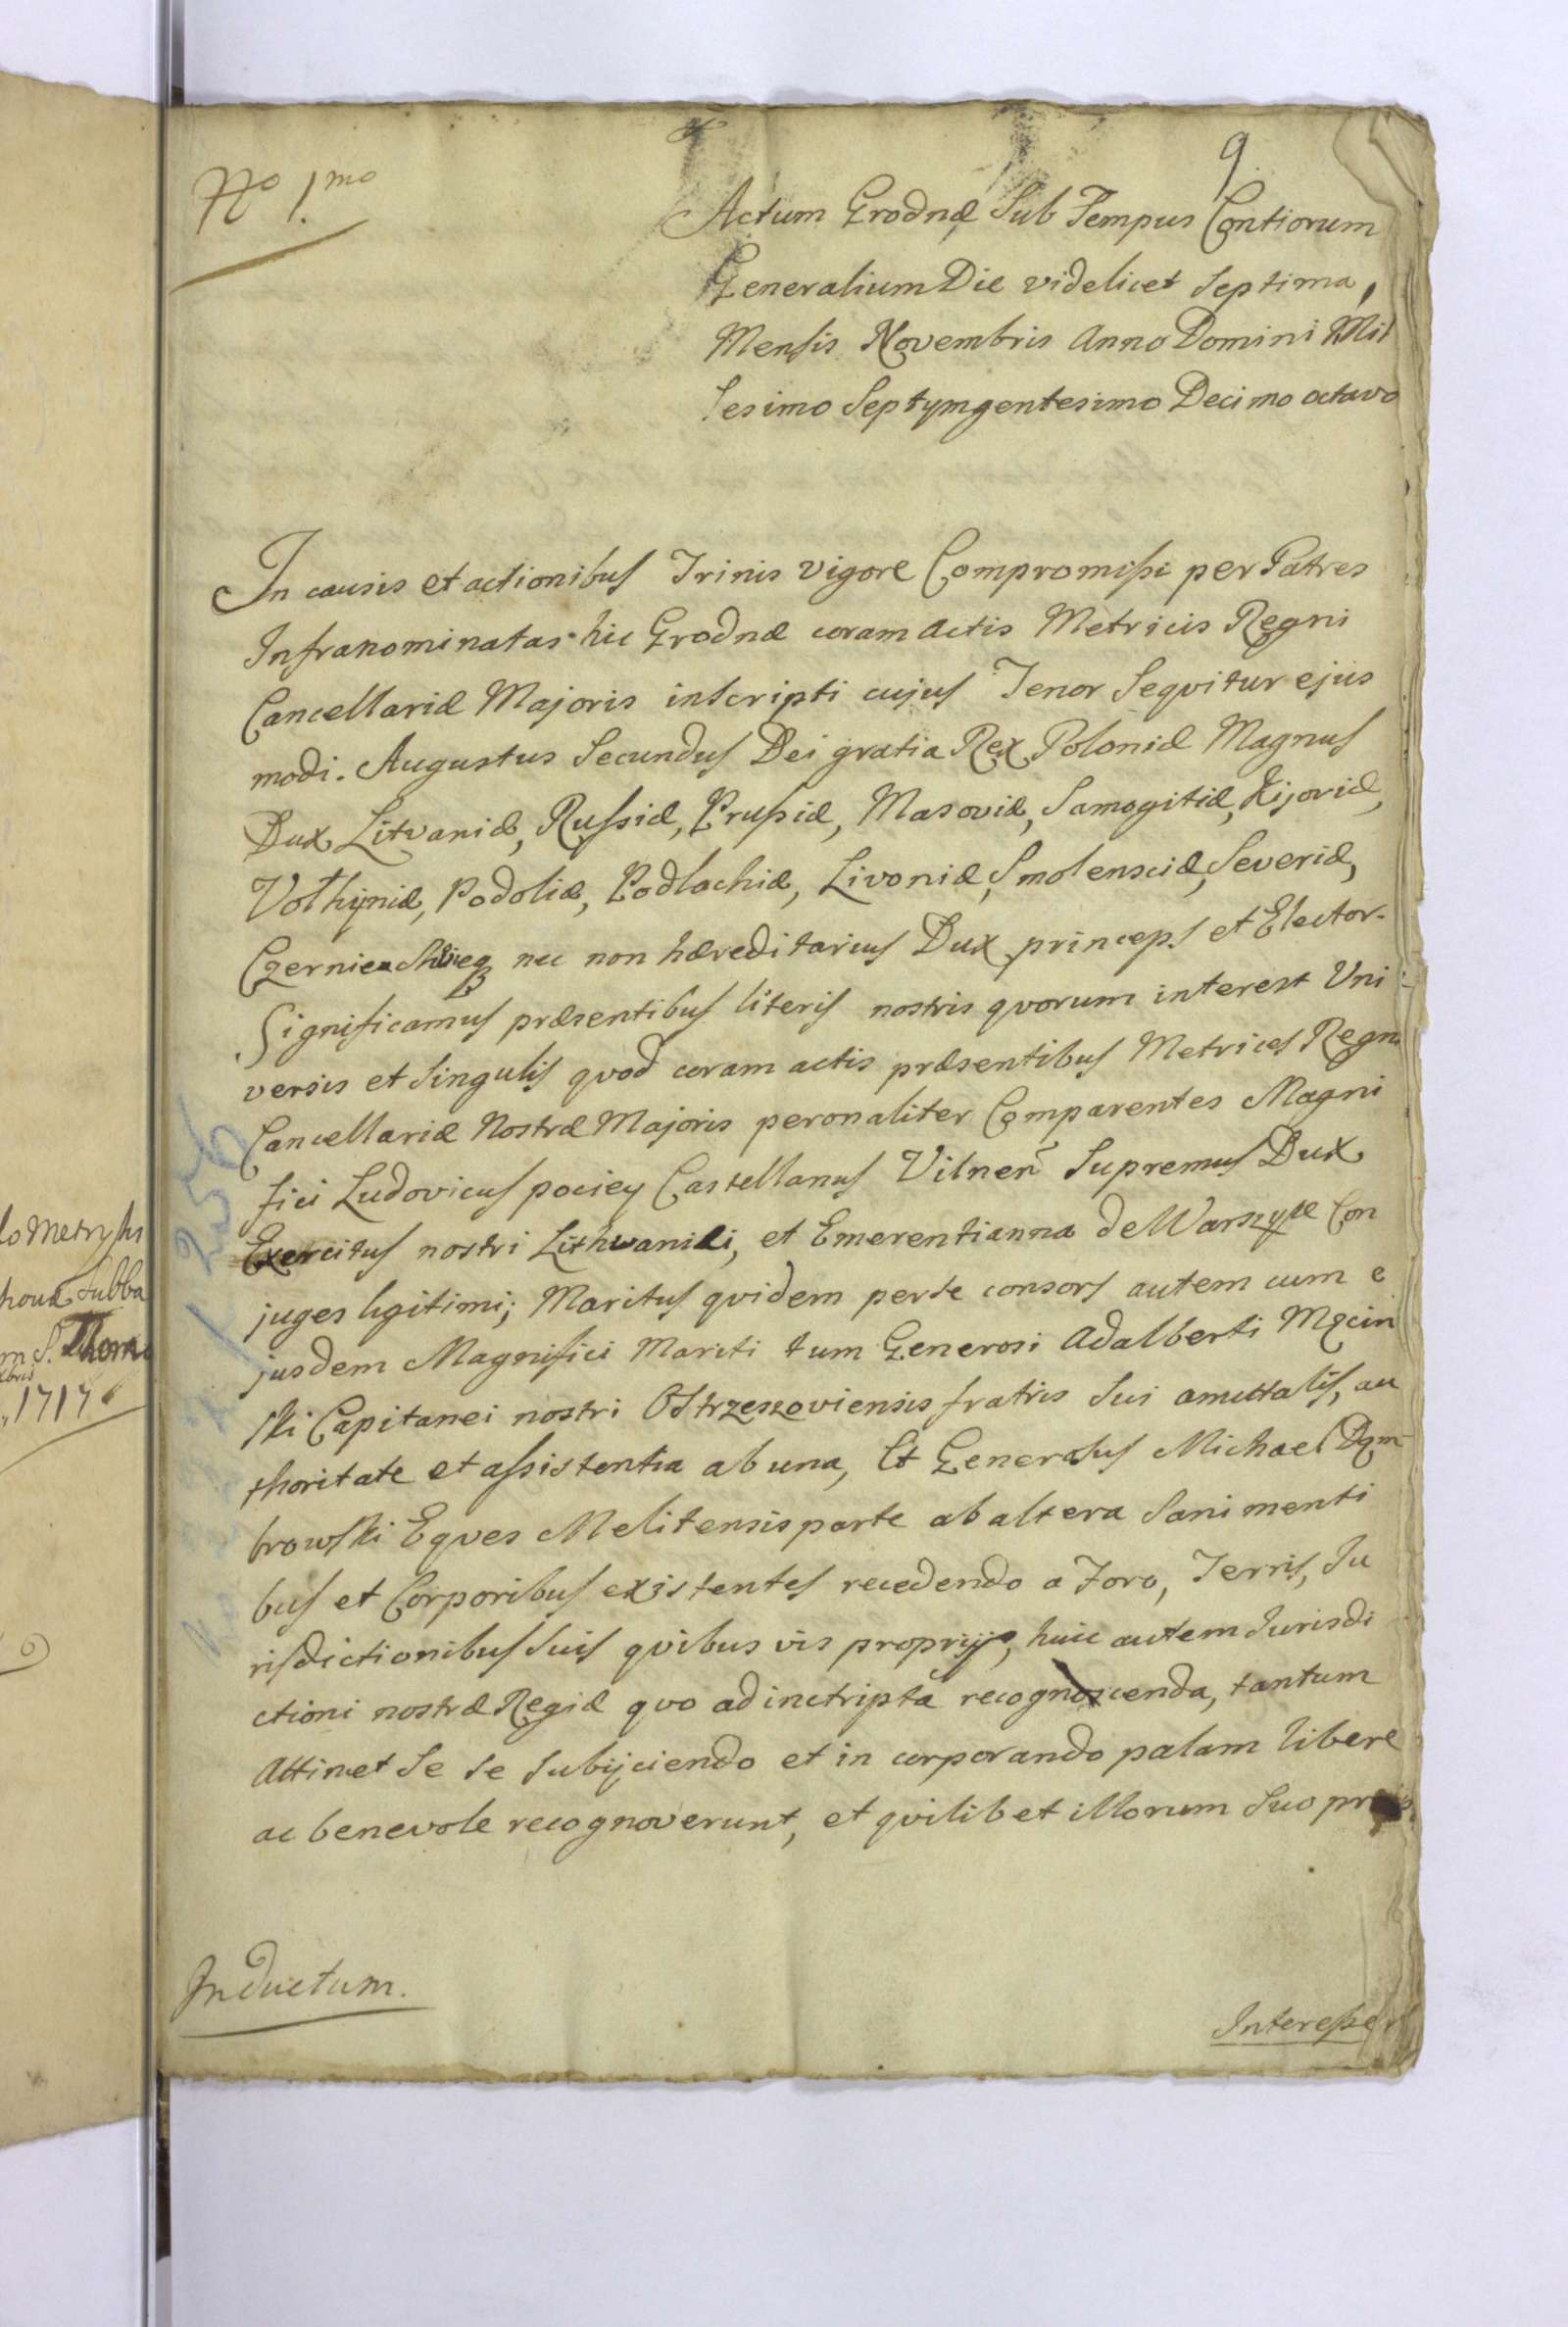 No 1.mo
9
Actum Grodnæ Sub Tempus Contiorum
Generalium Die videlicet Septima,
Mensis Novembris Anno Domini Mil
lesimo Septymgentesimo Decimo octavo
In causis et actionibus Trinis vigore Compromissi per Patres
Infranominatas hic Grodnæ coram Actis Metricis Regni
Cancellariæ Majoris inscripti cujus Tenor Seqvitur ejus
modi. Augustus Secundus Dei gratia Rex Poloniæ Magnus
Dux Litvaniæ, Russiæ, Prussiæ, Masoviæ, Samogitiæ, Kijoviæ,
Volhyniæ, Podoliæ, Podlachiæ, Livoniæ, Smolensciæ, Severiæ,
nec non hæreditarius Dux princeps et Elector.
Significamus præsentibus literis nostris qvorum interest Uni
versis et Singulis qvod coram actis præsentibus Metrices Regni
Cancellariæ Nostræ Majoris peronaliter Comparentes Magni
fici Ludovicus pociey Castellanus Vilnen Supremus Dux
Exercitus nostri Lithvanici, et Emerentianna de Warszyce Con
juges legitimi; Maritus qvidem per se consors autem cum e
jusdem Magnifici Mariti tum Generosi Adalberti Mqcin
ski Capitanei nostri Ostrzeszoviensis fratris Sui amittalis, au
thoritate et assistentia ab una, Et Generosus Michael Dqm
browski Eqves Melitensis parte ab altera Sani menti
bus et Corporibus existentes recedendo a Foro, Terris, Ju
risdictionibus Suis qvibus vis proprijs, huic autem Jurisdi
ctioni nostræ Regiæ qvo ad inctripta recognoscenda, tantum
Attinet Se se Subijciendo et in corporando palam libere
ac benevole recognoverunt, et qvilibet illorum Suo
Inductum.
Interesse
lo Metryki
Subba
m S. Thom
1717